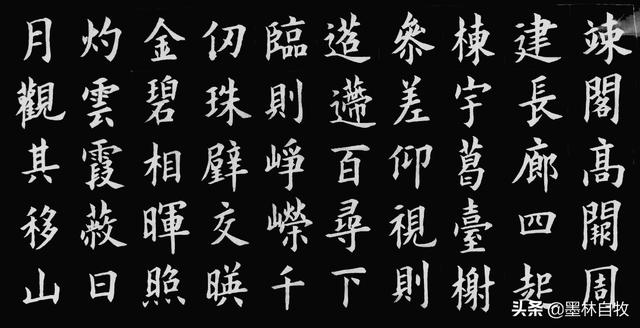 竦閣高闕周
建長廊四起
棟宇葛臺榭
參差仰視則
迢遰百尋下
臨則崢嶸千
仞珠璧交暎
金碧相暉照
灼雲霞蔽日
月觀其移山
头条 @墨林自牧